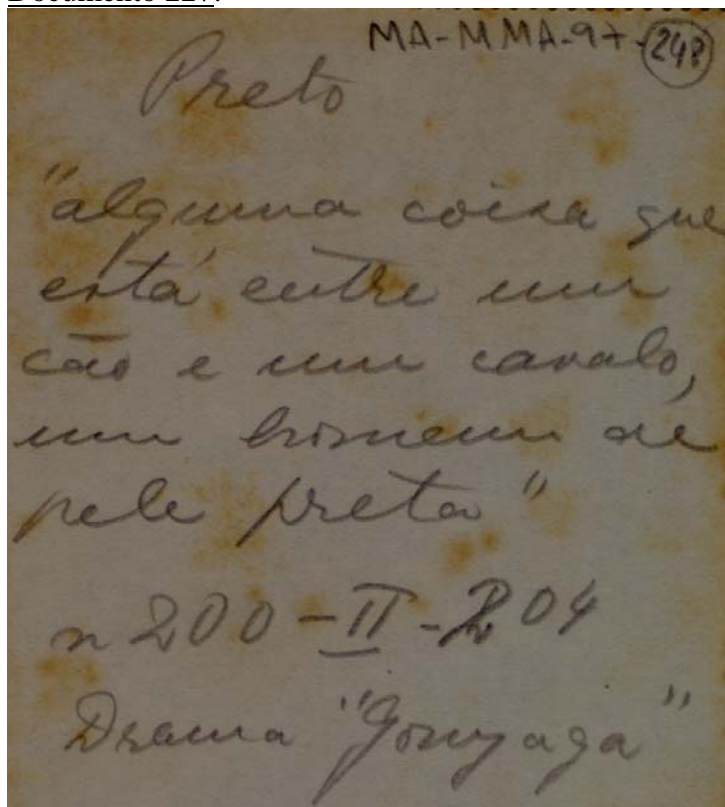 Documento 227.
MA-MMA-97-248
Preto
"alguma coisa que
está entre um
cão e um cavalo,
um homem de
pele preta"
n 200-II-204
Drama "Gonzaga"